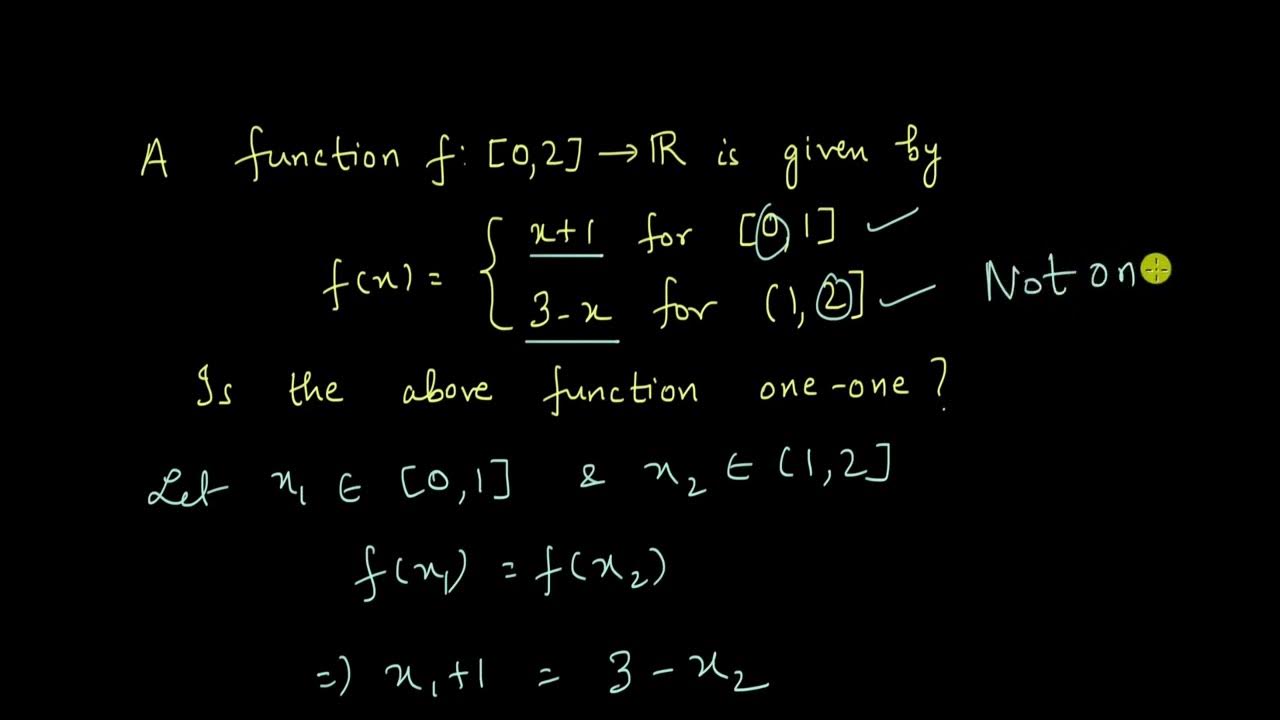 A function f: [0,2] → ℝ is given by
f(x) = { x+1 for [0,1] ✓
3-x for (1,2] ✓ Not on
Is the above function one-one?
Let x₁ ∈ [0,1] & x₂ ∈ (1,2]
f(x₁) = f(x₂)
⇒ x₁+1 = 3-x₂